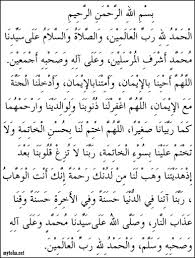 بِسْمِ اللهِ الرَّحْمَنِ الرَّحِيْمِ
الْحَمْدُ لِلهِ رَبِّ الْعَالَمِيْنَ، وَالصَّلَاةُ وَالسَّلَامُ عَلَى سَيِّدِنَا
مُحَمَّدٍ أَشْرَفِ الْمُرْسَلِيْنَ، وَعَلَى آلِهِ وَصَحْبِهِ أَجْمَعِيْنَ.
اللَّهُمَّ أَحْيِنَا بِالإِيْمَانِ، وَأَمِتْنَا بِالإِيْمَانِ، وَأَدْخِلْنَا الْجَنَّةَ
مَعَ الإِيْمَانِ، اللَّهُمَّ اغْفِرْلَنَا ذُنُوْبَنَا وَلِوَالِدَيْنَا وَارْحَمْهُمَا
كَمَا رَبَّيَانَا صِغَيْرًا، اللَّهُمَّ اخْتِمْ لَنَا بِحُسْنِ الْخَاتِمَةِ وَلَا
تَخْتِمْ عَلَيْنَا بِسُوْءِ الْخَاتِمَةِ، رَبَّنَا لَا تُزِغْ قُلُوْبَنَا بَعْدَ
إِذْ هَدَيْتَنَا وَهَبْ لَنَا مِنْ لَدُنْكَ رَحْمَةً إِنَّكَ أَنْتَ الْوَهَّابُ
رَبَّنَا آتِنَا فِي الدُّنْيَا حَسَنَةً وَفِي الآخِرَةِ حَسَنَةً وَقِنَا
عَذَابَ النَّارِ، وَصَلَّى اللهُ عَلَى سَيِّدِنَا مُحَمَّدٍ وَعَلَى آلِهِ
وَصَحْبِهِ وَسَلَّمَ، وَالْحَمْدُ لِلهِ رَبِّ الْعَالَمِيْنَ.